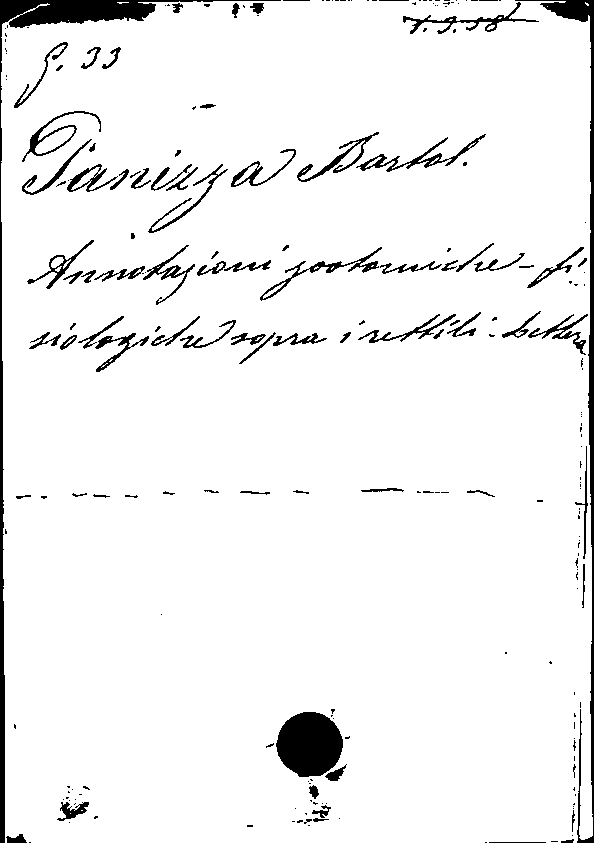 V. 9. 58
G. 33
Panizza Bartol.
Annotazioni zootomiche - fi
siologiche sopra i rettili. Lettera